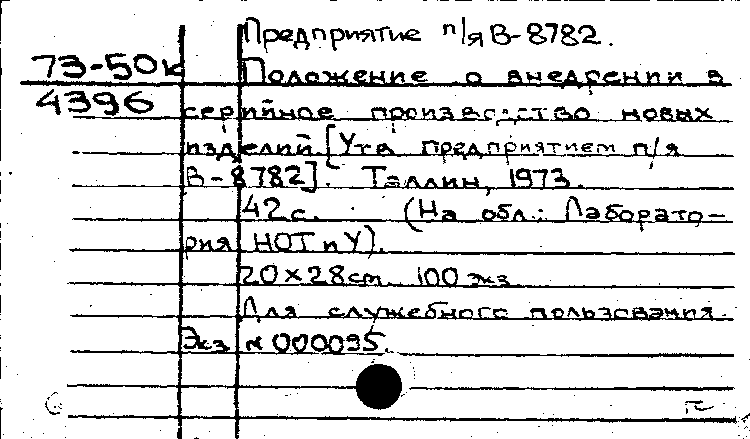 Предприятие п/я В-8782.
73-50к
Положение о внедрении в
4396
серийное производство новых
изделий. [Утв. предприятием п/я
В-8782]. Таллин, 1973.
42 с. (На обл.: Лаборато-
рия НОТ и У).
20×28cm. 100 экз.
Для служебного пользования.
Экз. № 000095.